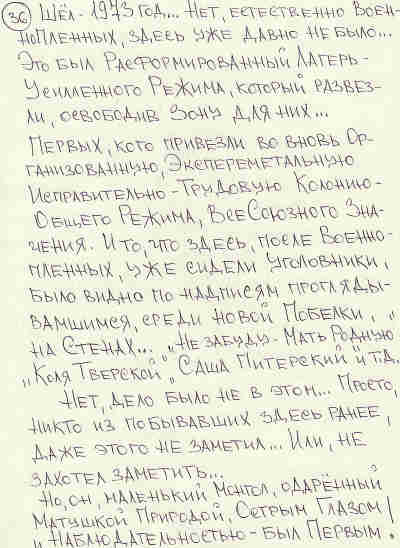 36 Шёл - 1973 год... Нет, естественно Воен-
нопленных, здесь уже давно не было...
Это был Расформированный Лагерь -
Усиленного Режима, который развез-
ли, освободив Зону для них...
Первых, кого привезли во вновь Ор-
ганизованную, Эксперeметальную
Исправительно-Трудовую Колонию -
Общего Режима, ВсеСоюзного Зна-
чения. И то, что здесь, после Военно-
пленных, уже сидели уголовники,
было видно по надписям прогляды-
вамшимся, среди новой Побелки, "
на Стенах... "Не забуду - Мать Родную
"Коля Тверской", Саша Питерский и т.д.
Нет, дело было не в этом... Просто,
никто из побывавших здесь ранее,
даже этого не заметил... Или, не
захотел заметить...
Но, он, маленький Монгол, одарённый
Матушкой Природой, Острым Глазом
и Наблюдательностью - был Первым!